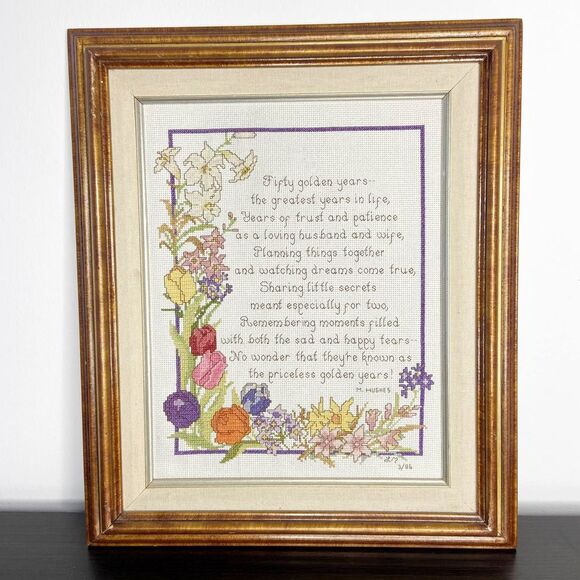 Fifty golden years--
the greatest years in life,
Years of trust and patience
as a loving husband and wife,
Planning things together
and watching dreams come true,
Sharing little secrets
meant especially for two,
Remembering moments filled
with both the sad and happy tears--
No wonder that they're known as
the priceless golden years!
M. HUGHES
3/86